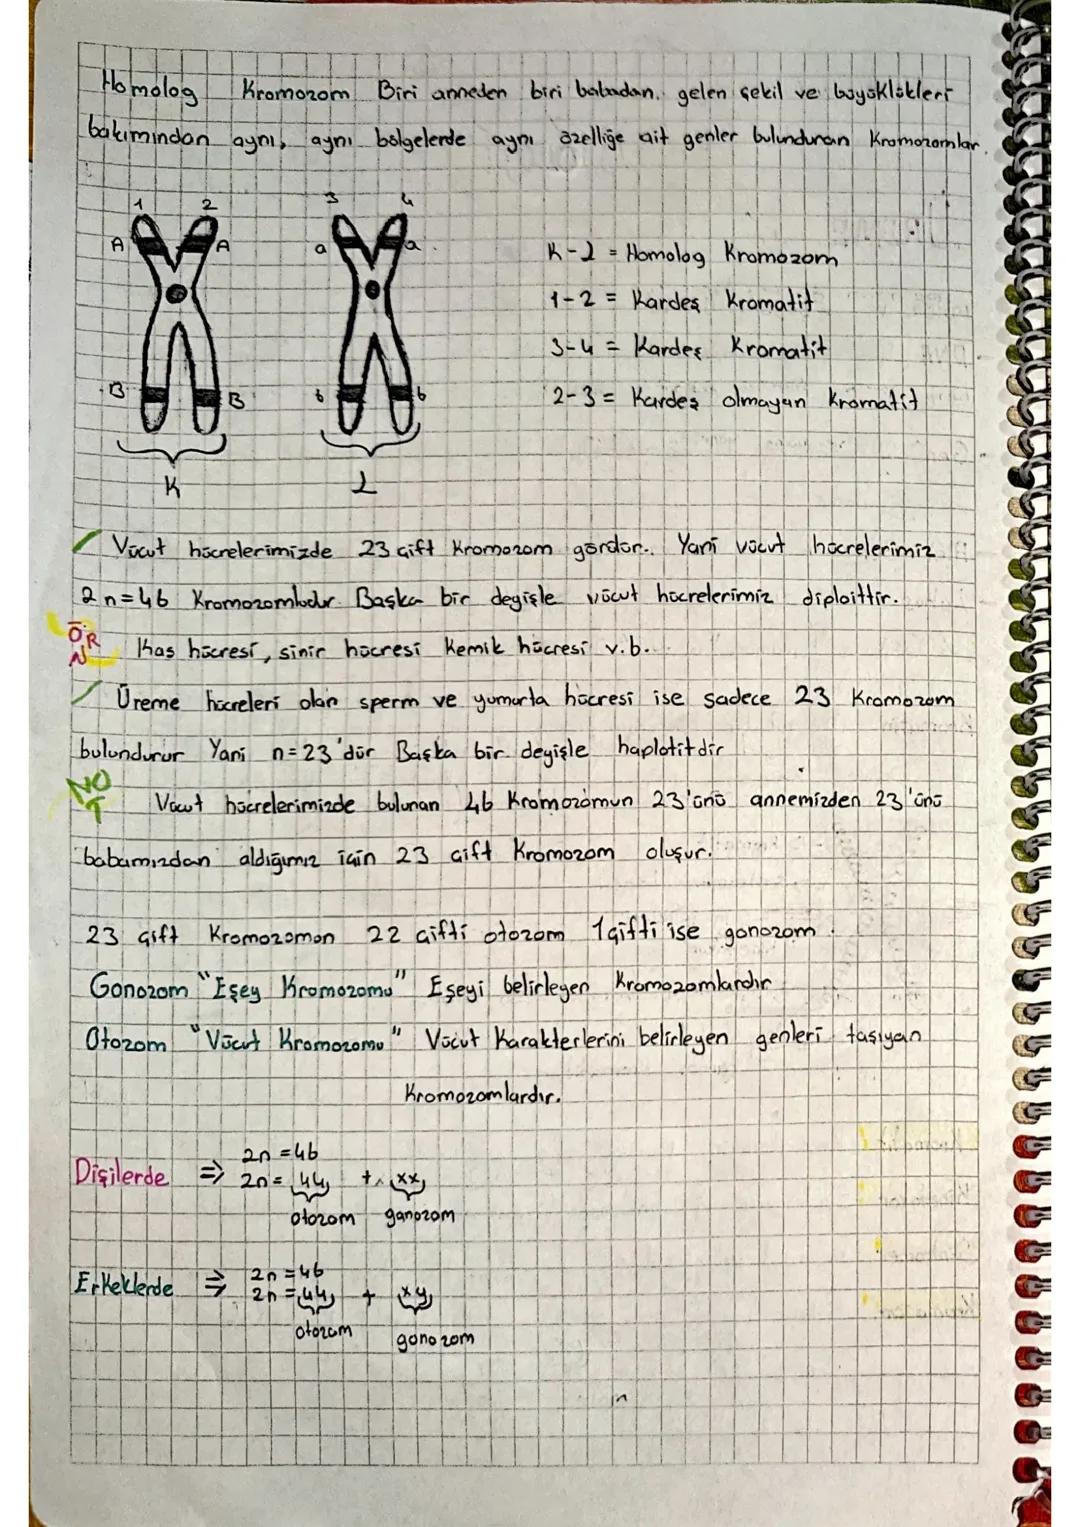 Homolog Kromozom Biri anneden biri babadan, gelen şekil ve büyüklükleri
bakımından aynı, aynı bölgelerde aynı özelliğe ait genler bulunduran Kromozomlar.
1 2 3 4
A A a a
K-L = Homolog Kromozom
1-2 = Kardeş Kromatit
3-4 = Kardeş Kromatit
B B b b
2-3 = Kardeş olmayan Kromatit
K L
Vücut hücrelerimizde 23 çift Kromozom görülür. Yani vücut hücrelerimiz
2n=46 Kromozomludur. Başka bir deyişle vücut hücrelerimiz diploittir.
ÖRN Kas hücresi, sinir hücresi Kemik hücresi v.b.
Üreme hücreleri olan sperm ve yumurta hücresi ise sadece 23 Kromozom
bulundurur Yani n=23'dür Başka bir deyişle haploitdir
NOT Vücut hücrelerimizde bulunan 46 Kromozomun 23'ünü annemizden 23'ünü
babamızdan aldığımız için 23 çift Kromozom oluşur.
23 çift Kromozomun 22 çifti otozom 1 çifti ise gonozom.
Gonozom "Eşey Kromozomu" Eşeyi belirleyen Kromozomlardır
Otozom "Vücut Kromozomu" Vücut Karakterlerini belirleyen genleri taşıyan
Kromozomlardır.
2n=46
Dişilerde ⇒ 2n = 44 + xx
otozom ganozom
2n=46
Erkeklerde ⇒ 2n = 44 + xy
otozom gonozom